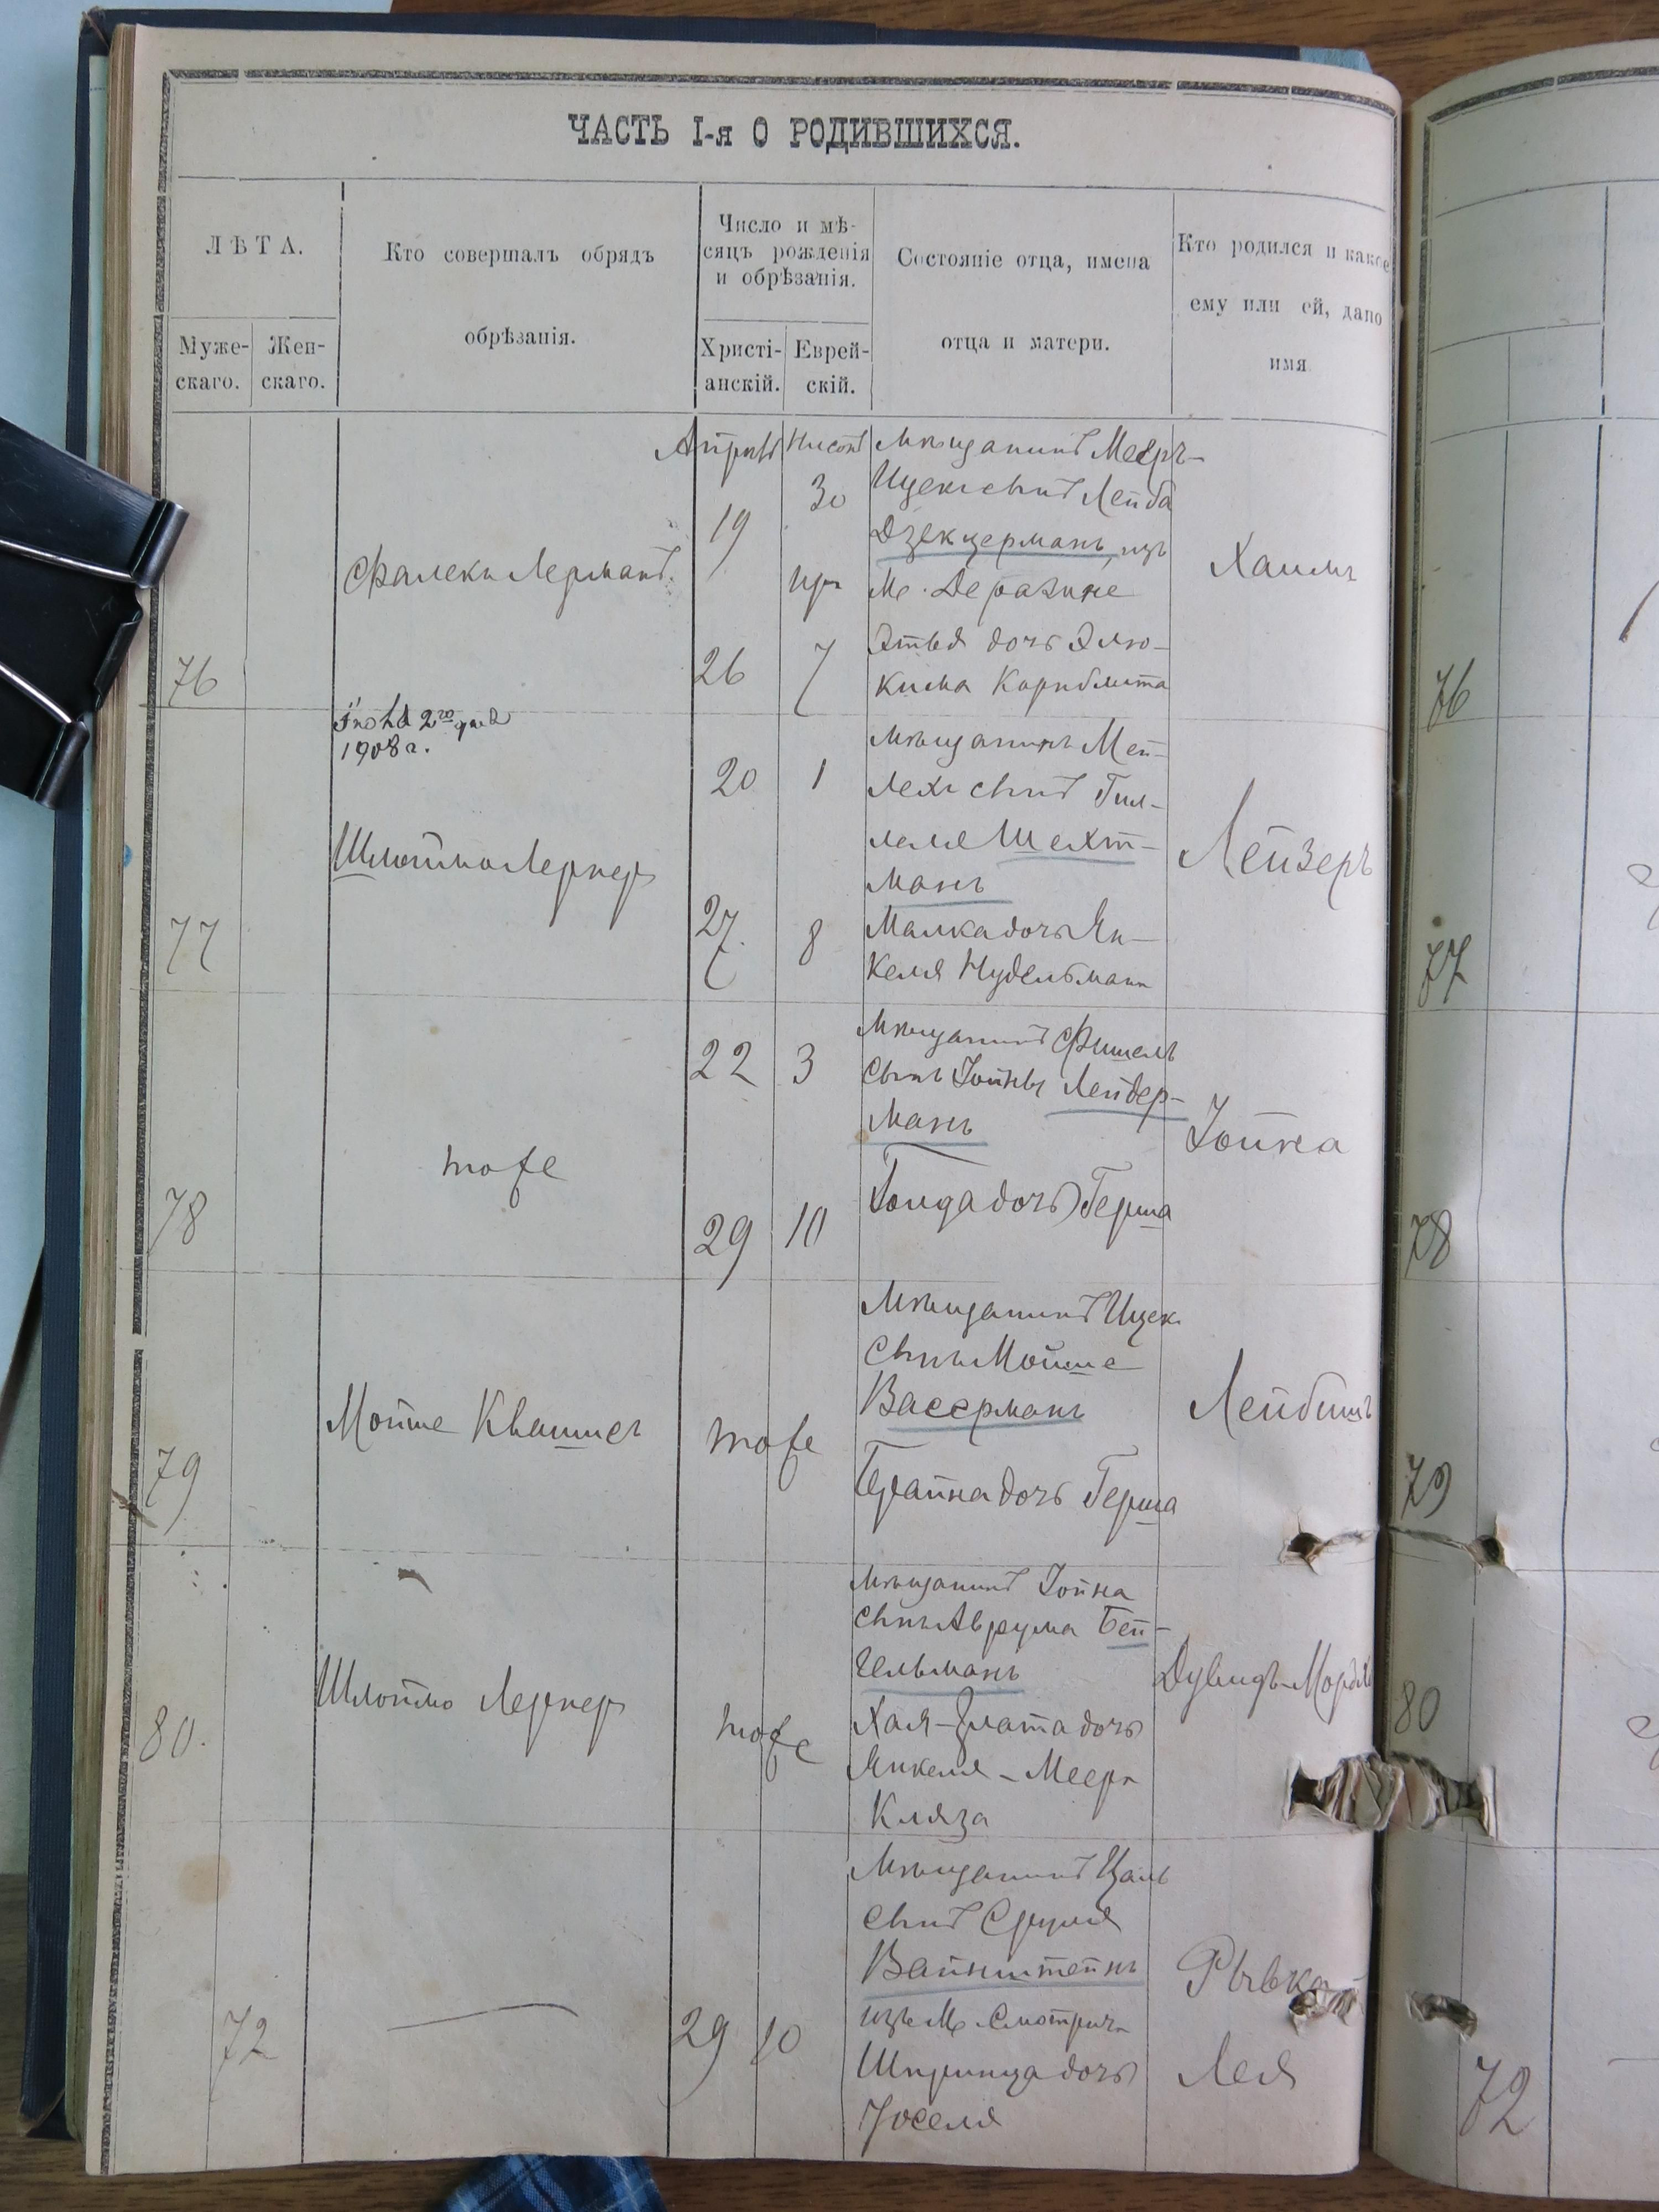 ЧАСТЬ I-я О РОДИВШИХСЯ.
ЛѢТА.
Муже-
скаго.
Жен-
скаго.
Кто совершалъ обрядъ
обрѣзанія.
Число и мѣ-
сяцъ рожденія
и обрѣзанія.
Христі-
анскій.
Еврей-
скій.
Состояніе отца, имена
отца и матери.
Кто родился и какое
ему или ей, дано
имя
76
Фалекъ Лерманъ
Апрѣль
19
26
Нисонъ
30
7
Мѣщанинъ Мееръ-
Ицекъ сынъ Лейба
Дзекцерманъ, изъ
м. Деражне
дочь Элю-
кима
Хаимъ
76
1908 г.
77
Шлойма Лернер
20
27
1
8
Мѣщанинъ Мей-
лехъ сынъ Гил-
леля Шехт-
манъ
Малка дочь Ян-
келя Нудельмана
Лейзеръ
77
78
тоже
22
29
3
10
Мѣщанинъ Фишель
сынъ Іойны Лейдер-
манъ
Голда дочь Герша
Іойна
78
79
Мойше Квашнер
тоже
Мѣщанинъ Ицек
сынъ Мойше
Вассерманъ
дочь Герша
Лейбишъ
79
80.
Шлоймо Лернер
тоже
Мѣщанинъ Іойна
сынъ Аврума Бей-
гельманъ
Хая-Злата дочь
Янкеля-Меера
Кляза
Дувидъ-Мордк
80
72
29
10
Мѣщанинъ Цаль
сынъ Сруля
Вайнштейнъ
изъ м. Смотрича
Шприница дочь
Іоселя
Рывка
Лея
72